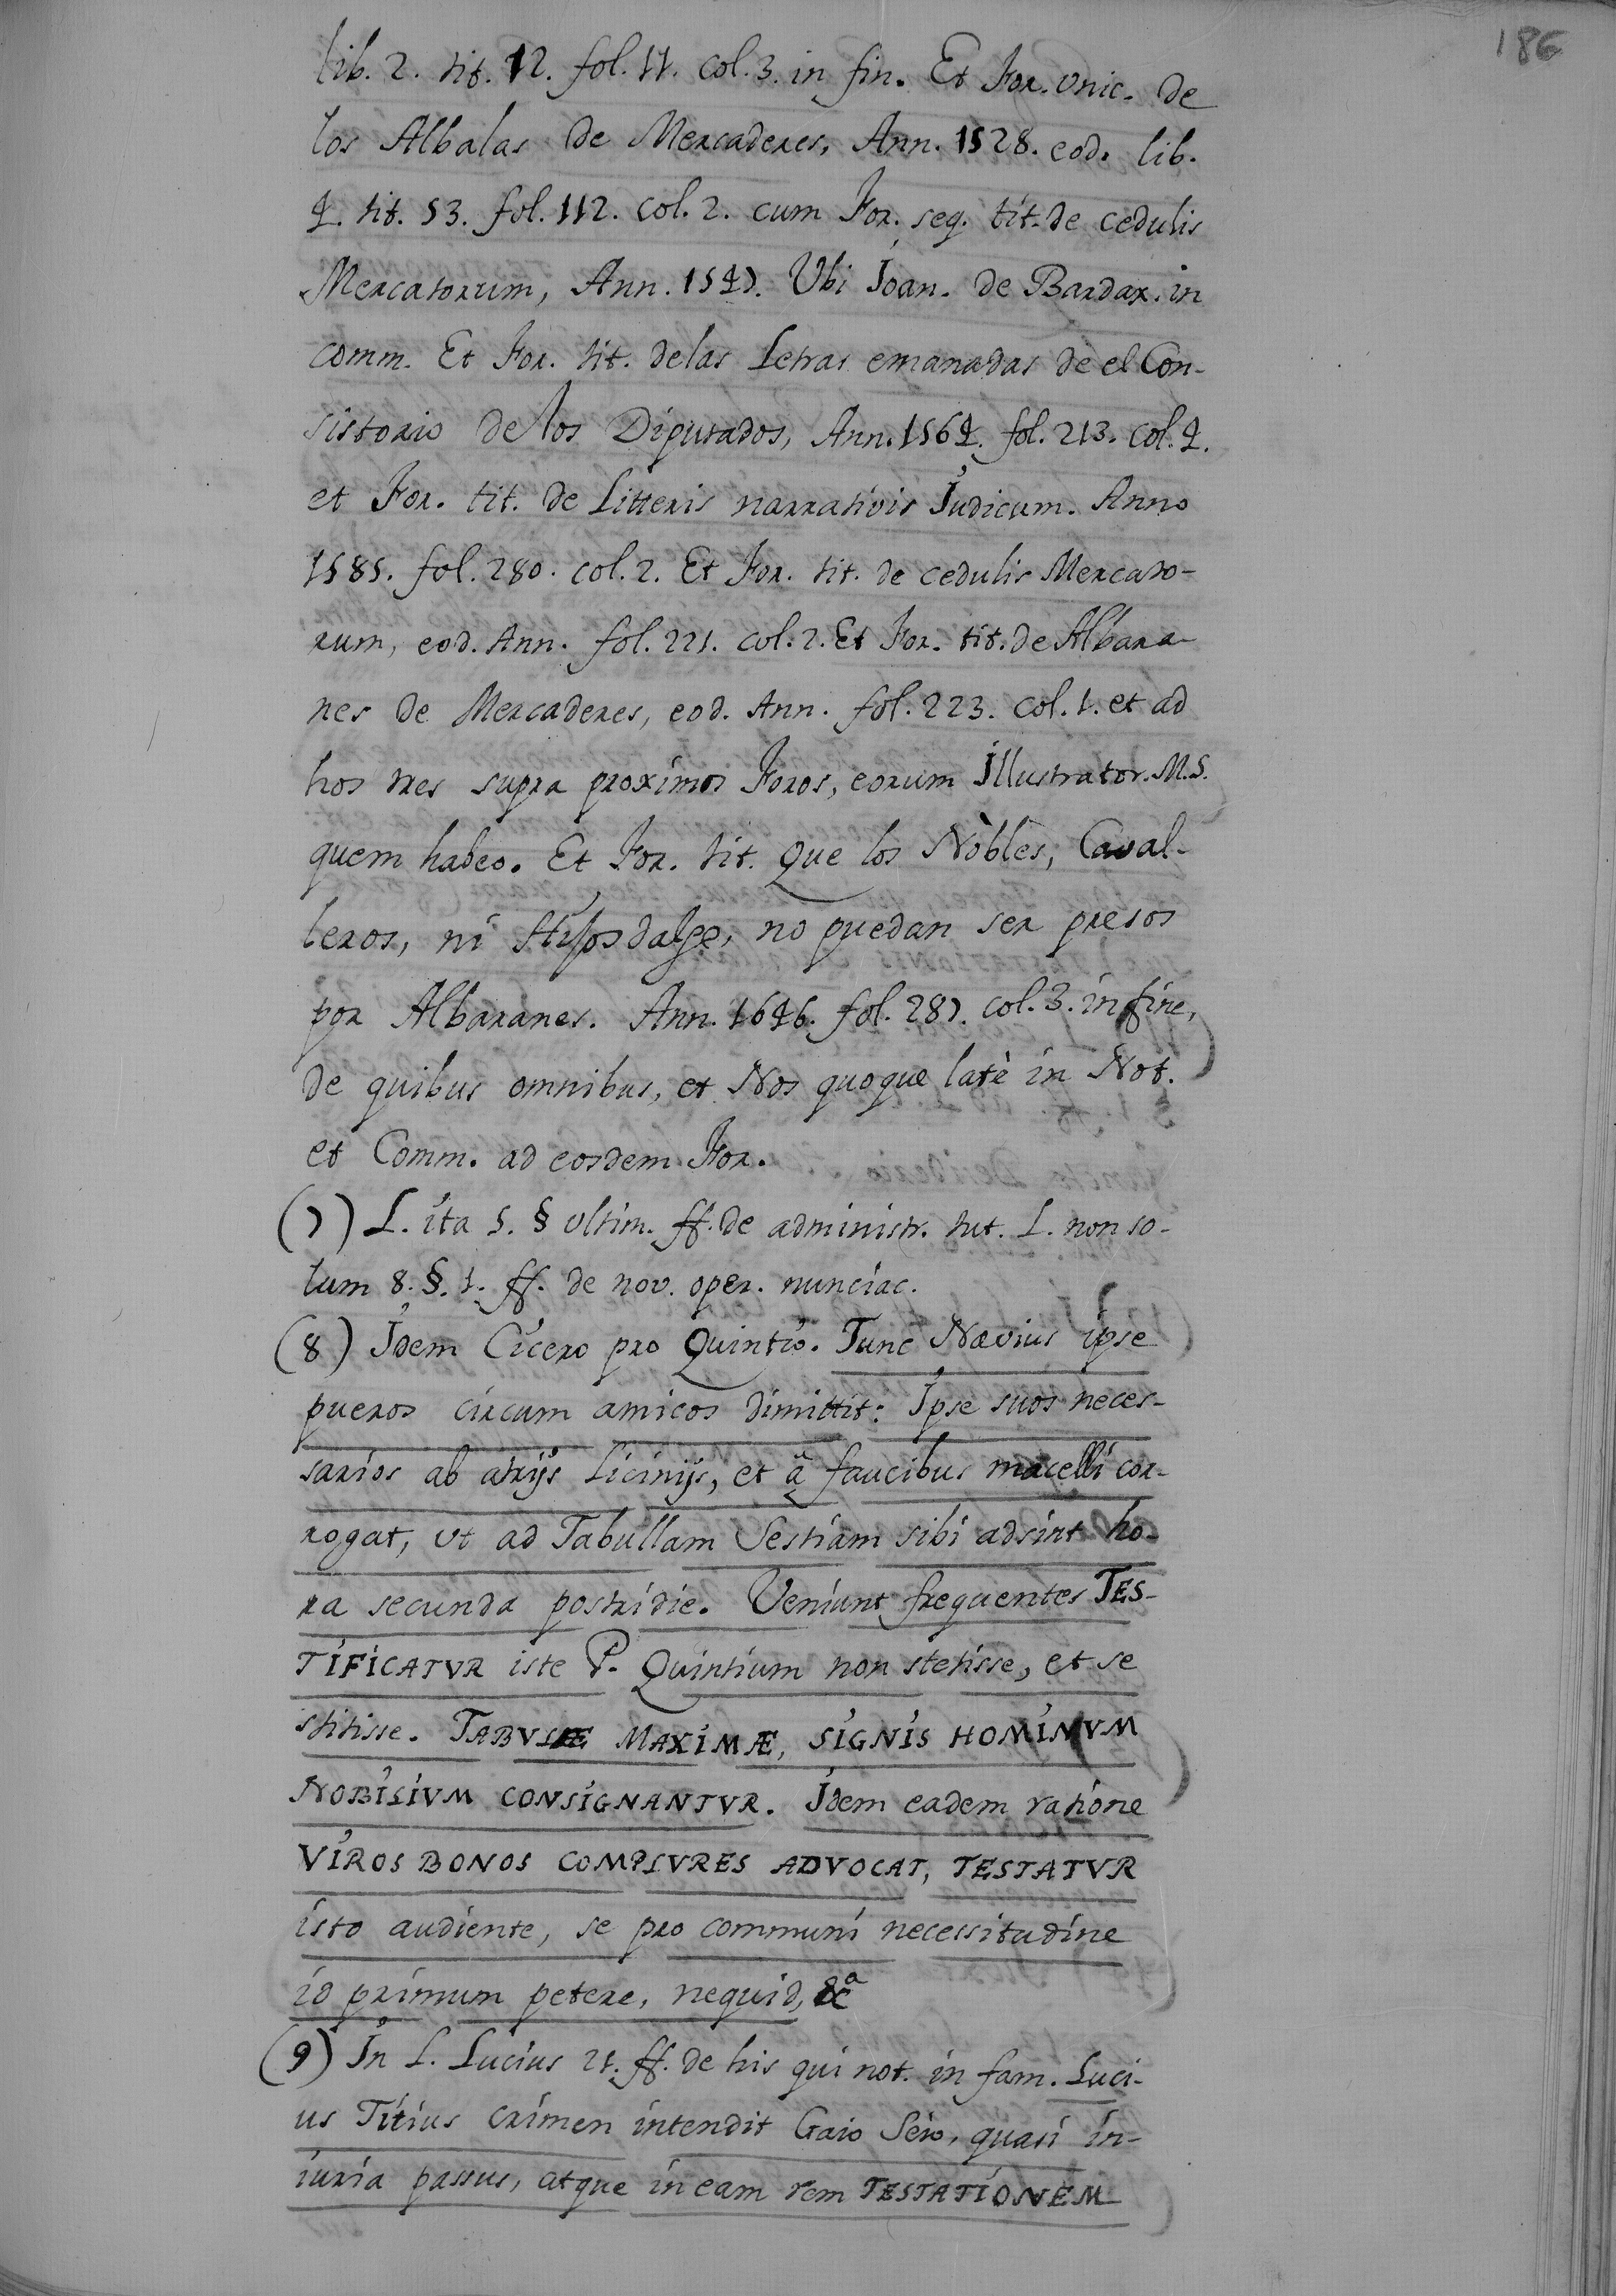 186
lib. 2. tit. 12. fol. 11. col. 3. in fin. Et For. vnic. de
los Albalas de Mercaderes, Ann. 1528. eod. lib.
4. tit. 53. fol. 112. col. 2. cum For. seq. tit. de cedulis
Mercatorum, Ann. 1547. Vbi Joan. de Bardax. in
comm. Et For. tit. delas Letras emanadas de el Con-
sistorio de los Diputados, Ann. 1564. fol. 213. col. 4.
et For. tit. de Litteris narrativis Judicum. Anno
1585. fol. 280. col. 2. Et For. tit. de cedulis Mercato-
rum, eod. Ann. fol. 221. col. 2. Et For. tit. de Albara-
nes de Mercaderes, eod. Ann. fol. 223. col. 1. et ad
hos tres supra proximos Foros, eorum Illustrator. M.S.
quem habeo. Et For. tit. Que los Nobles, Caval-
leros, ni Hijosdalgo, no puedan ser presos
por Albaranes. Ann. 1646. fol. 287. col. 3. in fine,
de quibus omnibus, et Nos quoque latè in Not.
et Comm. ad eosdem For.
(7) L. ita 5. § vltim. ff. de administr. tut. L. non so-
lum 8. §. 1. ff. de nov. oper. nunciac.
(8) Idem Cicero pro Quintio. Tunc Nævius ipse
pueros circum amicos dimittit: Ipse suos neces-
sarios ab atrijs Licinijs, et à faucibus macelli cor-
rogat, vt ad Tabullam Sestiam sibi adsint ho-
ra secunda postridie. Veniunt frequentes TES-
TIFICATVR iste P. Quintium non stetisse, et se
stitisse. TABVLÆ MAXIMÆ, SIGNIS HOMINVM
NOBILIVM CONSIGNANTVR. Idem eadem ratione
VIROS BONOS COMPLVRES ADVOCAT, TESTATVR
isto audiente, se pro communi necessitudine
id primum petere, nequid, &cª
(9) In L. Lucius 21. ff. de his qui not. in fam. Luci-
us Titius crimen intendit Gaio Seio, quasi in-
iuria passus, atque in eam rem TESTATIONEM